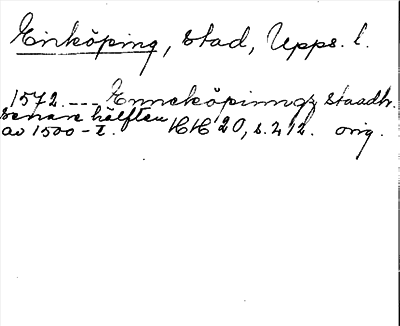 Enköping, stad, Upps. l.
1572. --- Enneköpinngz staadh.
senare hälften
av 1500-t. HH 20, s. 212. orig.